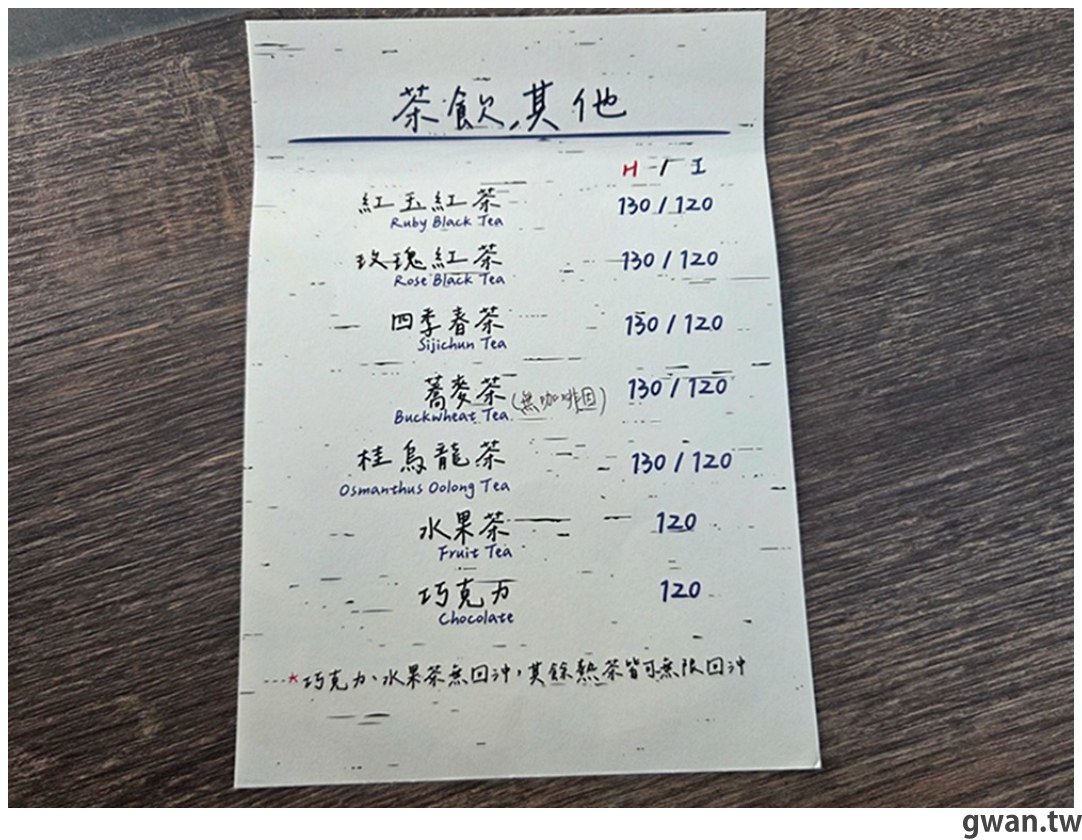 茶飲,其他
H / I
紅玉紅茶 130 / 120
Ruby Black Tea
玫瑰紅茶 130 / 120
Rose Black Tea
四季春茶 130 / 120
Sijichun Tea
蕎麥茶(無咖啡因) 130 / 120
Buckwheat Tea
桂烏龍茶 130 / 120
Osmanthus Oolong Tea
水果茶 120
Fruit Tea
巧克力 120
Chocolate
*巧克力、水果茶無回沖,其餘熱茶皆可無限回沖
gwan.tw